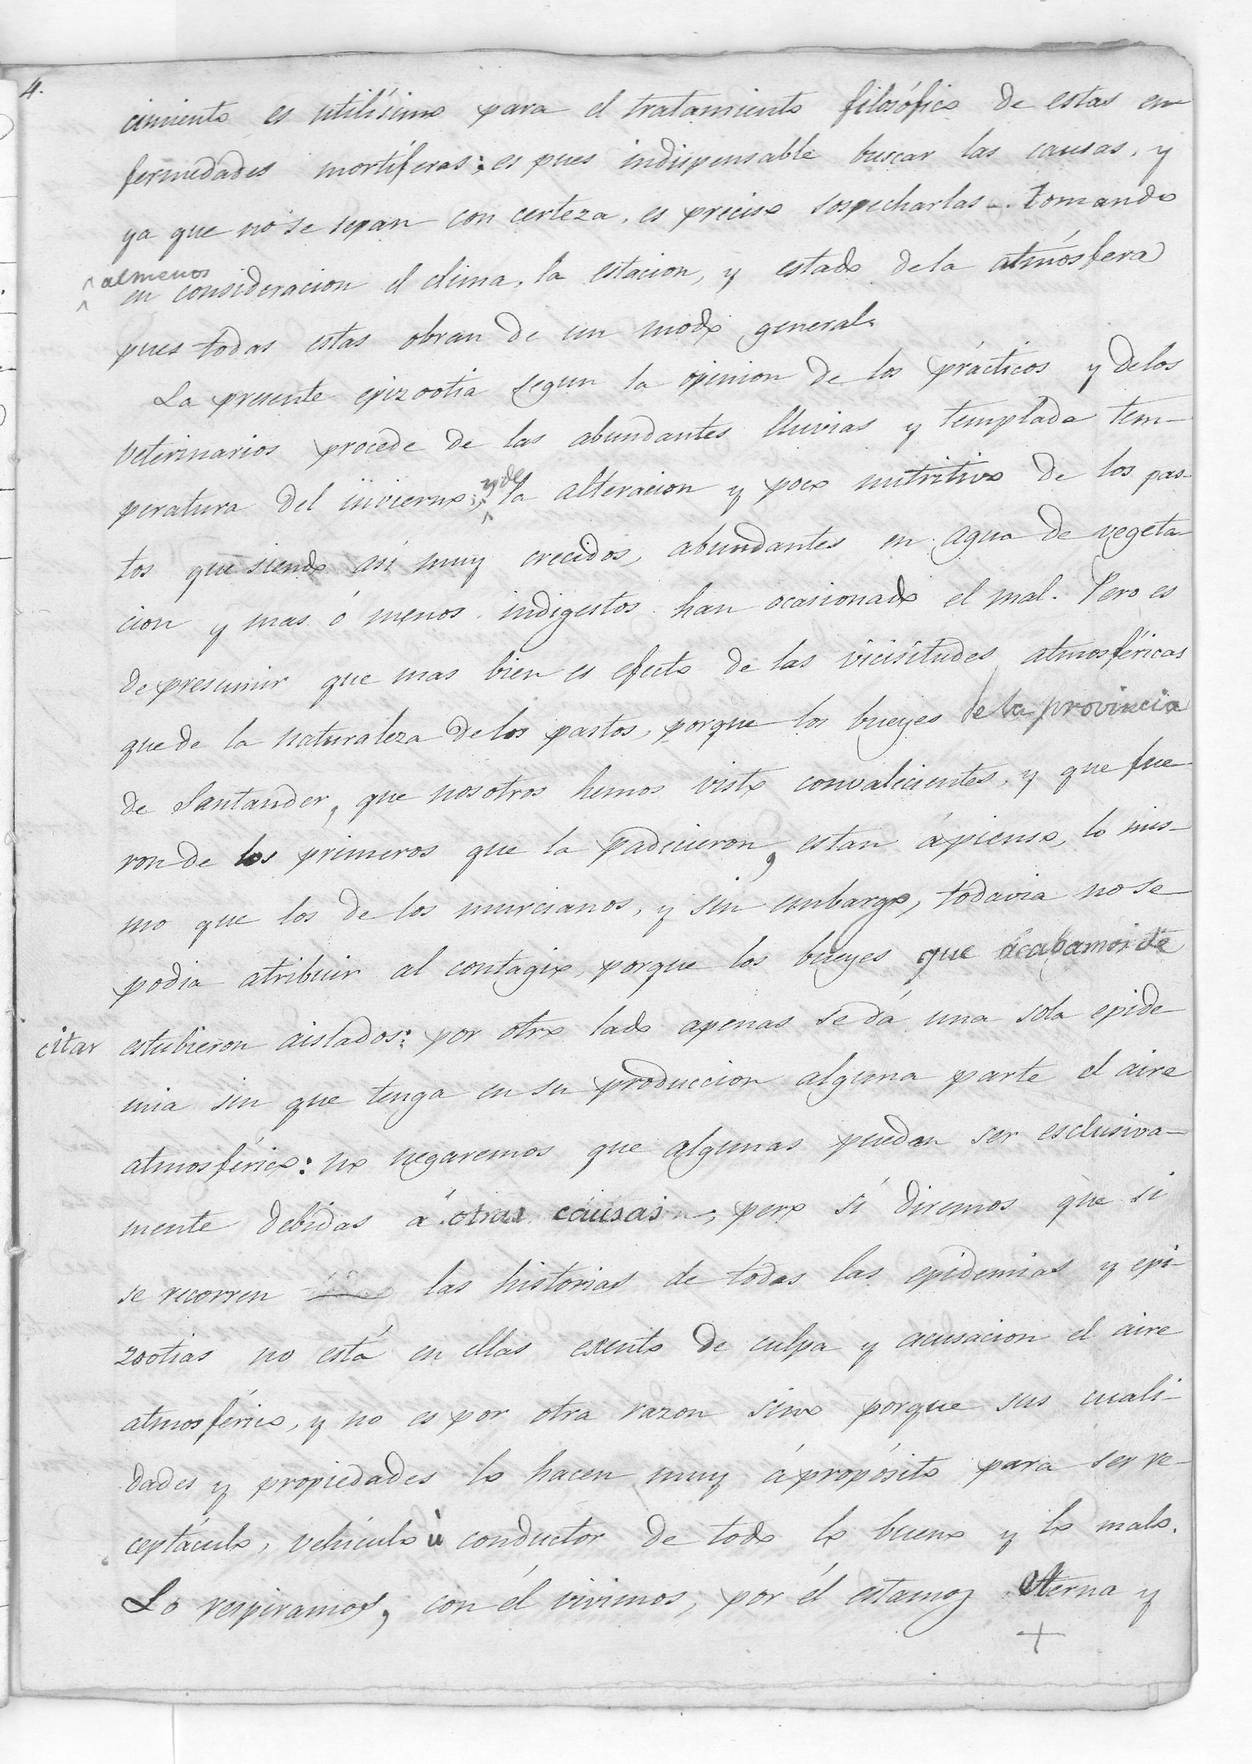 4.
cimiento es utilísimo para el tratamiento filosófico de estas en
fermedades mortíferas; es pues indispensable buscar las causas, y
ya que no se sepan con certeza, es preciso sospecharlas - tomando
al menos
en consideracion el clima, la estacion, y estado de la atmósfera
pues todas estas obran de un modo general.
La presente epizootia segun la opinion de los prácticos y delos
veterinarios procede de las abundantes lluvias y templada tem-
y de
peratura del invierno; la alteracion y poco nutritivo de los pas-
tos que siendo asi muy crecidos, abundantes en agua de vegeta
cion y mas ó menos indigestos han ocasionado el mal. Pero es
de presumir que mas bien es efecto de las vicisitudes atmosféricas
que de la naturaleza delos pastos, porque los bueyes de la provincia
de Santander, que nosotros hemos visto convalicientes, y que fue
ron de los primeros que la padecieron, estan á pienso, lo mis-
mo que los de los murcianos, y sin embargo, todavia no se
podia atribuir al contagio, porque los bueyes que acabamos de
citar estubieron aislados: por otro lado apenas se dá una sola epide
mia sin que tenga en su produccion alguna parte el aire
atmosférico: no negaremos que algunas puedan ser esclusiva-
mente debidas á otras causas, pero sí diremos que si
se recorren las historias de todas las epidemias y epi-
zootias no está en ellas exento de culpa y acusacion el aire
atmosférico, y no es por otra razon sino porque sus cuali-
dades y propiedades lo hacen muy á propósito para ser re-
ceptáculo, vehículo ù conductor de todo lo bueno y lo malo.
Lo respiramos, con él vivimos, por él estamos eterna y